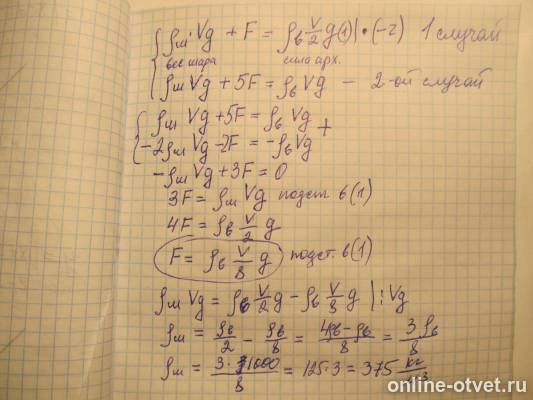 ρш·Vg + F = ρв V/2 g (1) |·(-2) 1 случай
вес шара сила арх.
ρш Vg + 5F = ρв Vg - 2-ой случай
ρш Vg + 5F = ρв Vg
-2ρш Vg - 2F = -ρв Vg +
-ρш Vg + 3F = 0
3F = ρш Vg подст в (1)
4F = ρв V/2 g
F = ρв V/8 g подст. в (1)
ρш Vg = ρв V/2 g - ρв V/8 g | : Vg
ρш = ρв/2 - ρв/8 = (4ρв - ρв)/8 = 3ρв/8
ρш = 3·1000/8 = 125·3 = 375 кг/м3
online-otvet.ru